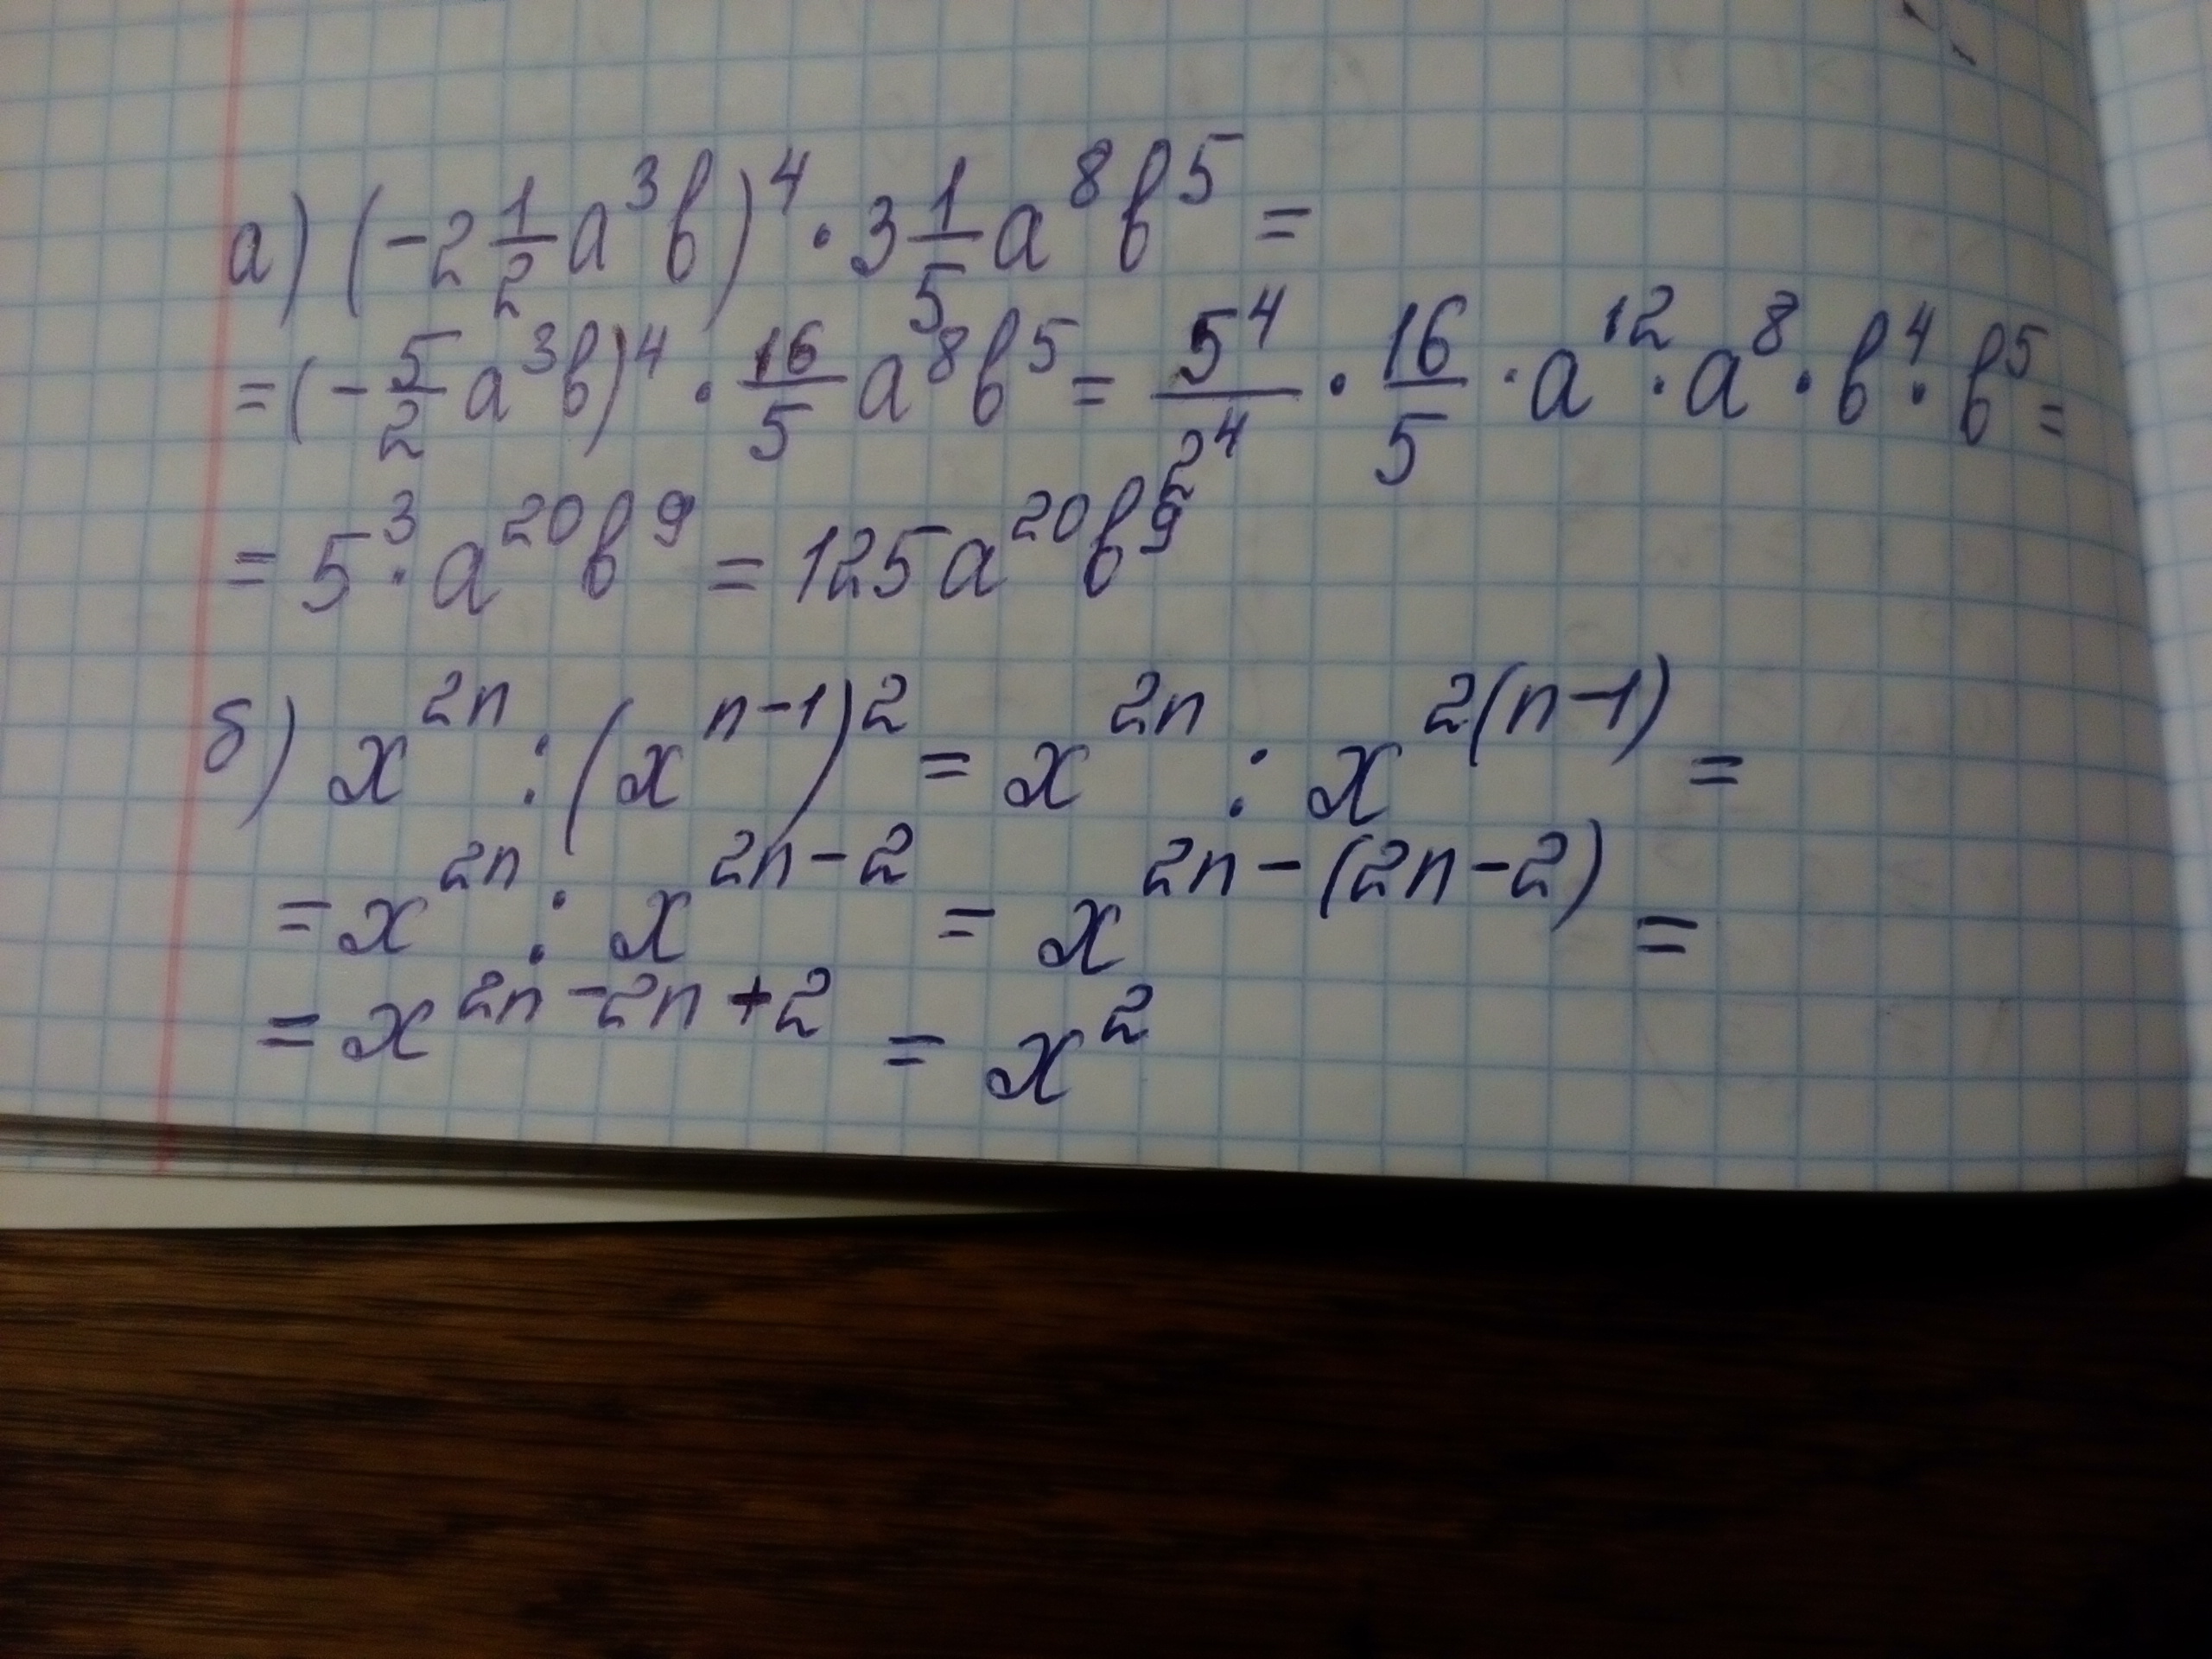 а) (-2 1/2 a³b)⁴ · 3 1/5 a⁸b⁵ =
= (- 5/2 a³b)⁴ · 16/5 a⁸b⁵ = 5⁴/2⁴ · 16/5 · a¹² · a⁸ · b⁴ · b⁵ =
= 5³ · a²⁰b⁹ = 125a²⁰b⁹
б) x²ⁿ : (xⁿ⁻¹)² = x²ⁿ : x²⁽ⁿ⁻¹⁾ =
= x²ⁿ : x²ⁿ⁻² = x²ⁿ⁻⁽²ⁿ⁻²⁾ =
= x²ⁿ⁻²ⁿ⁺² = x²